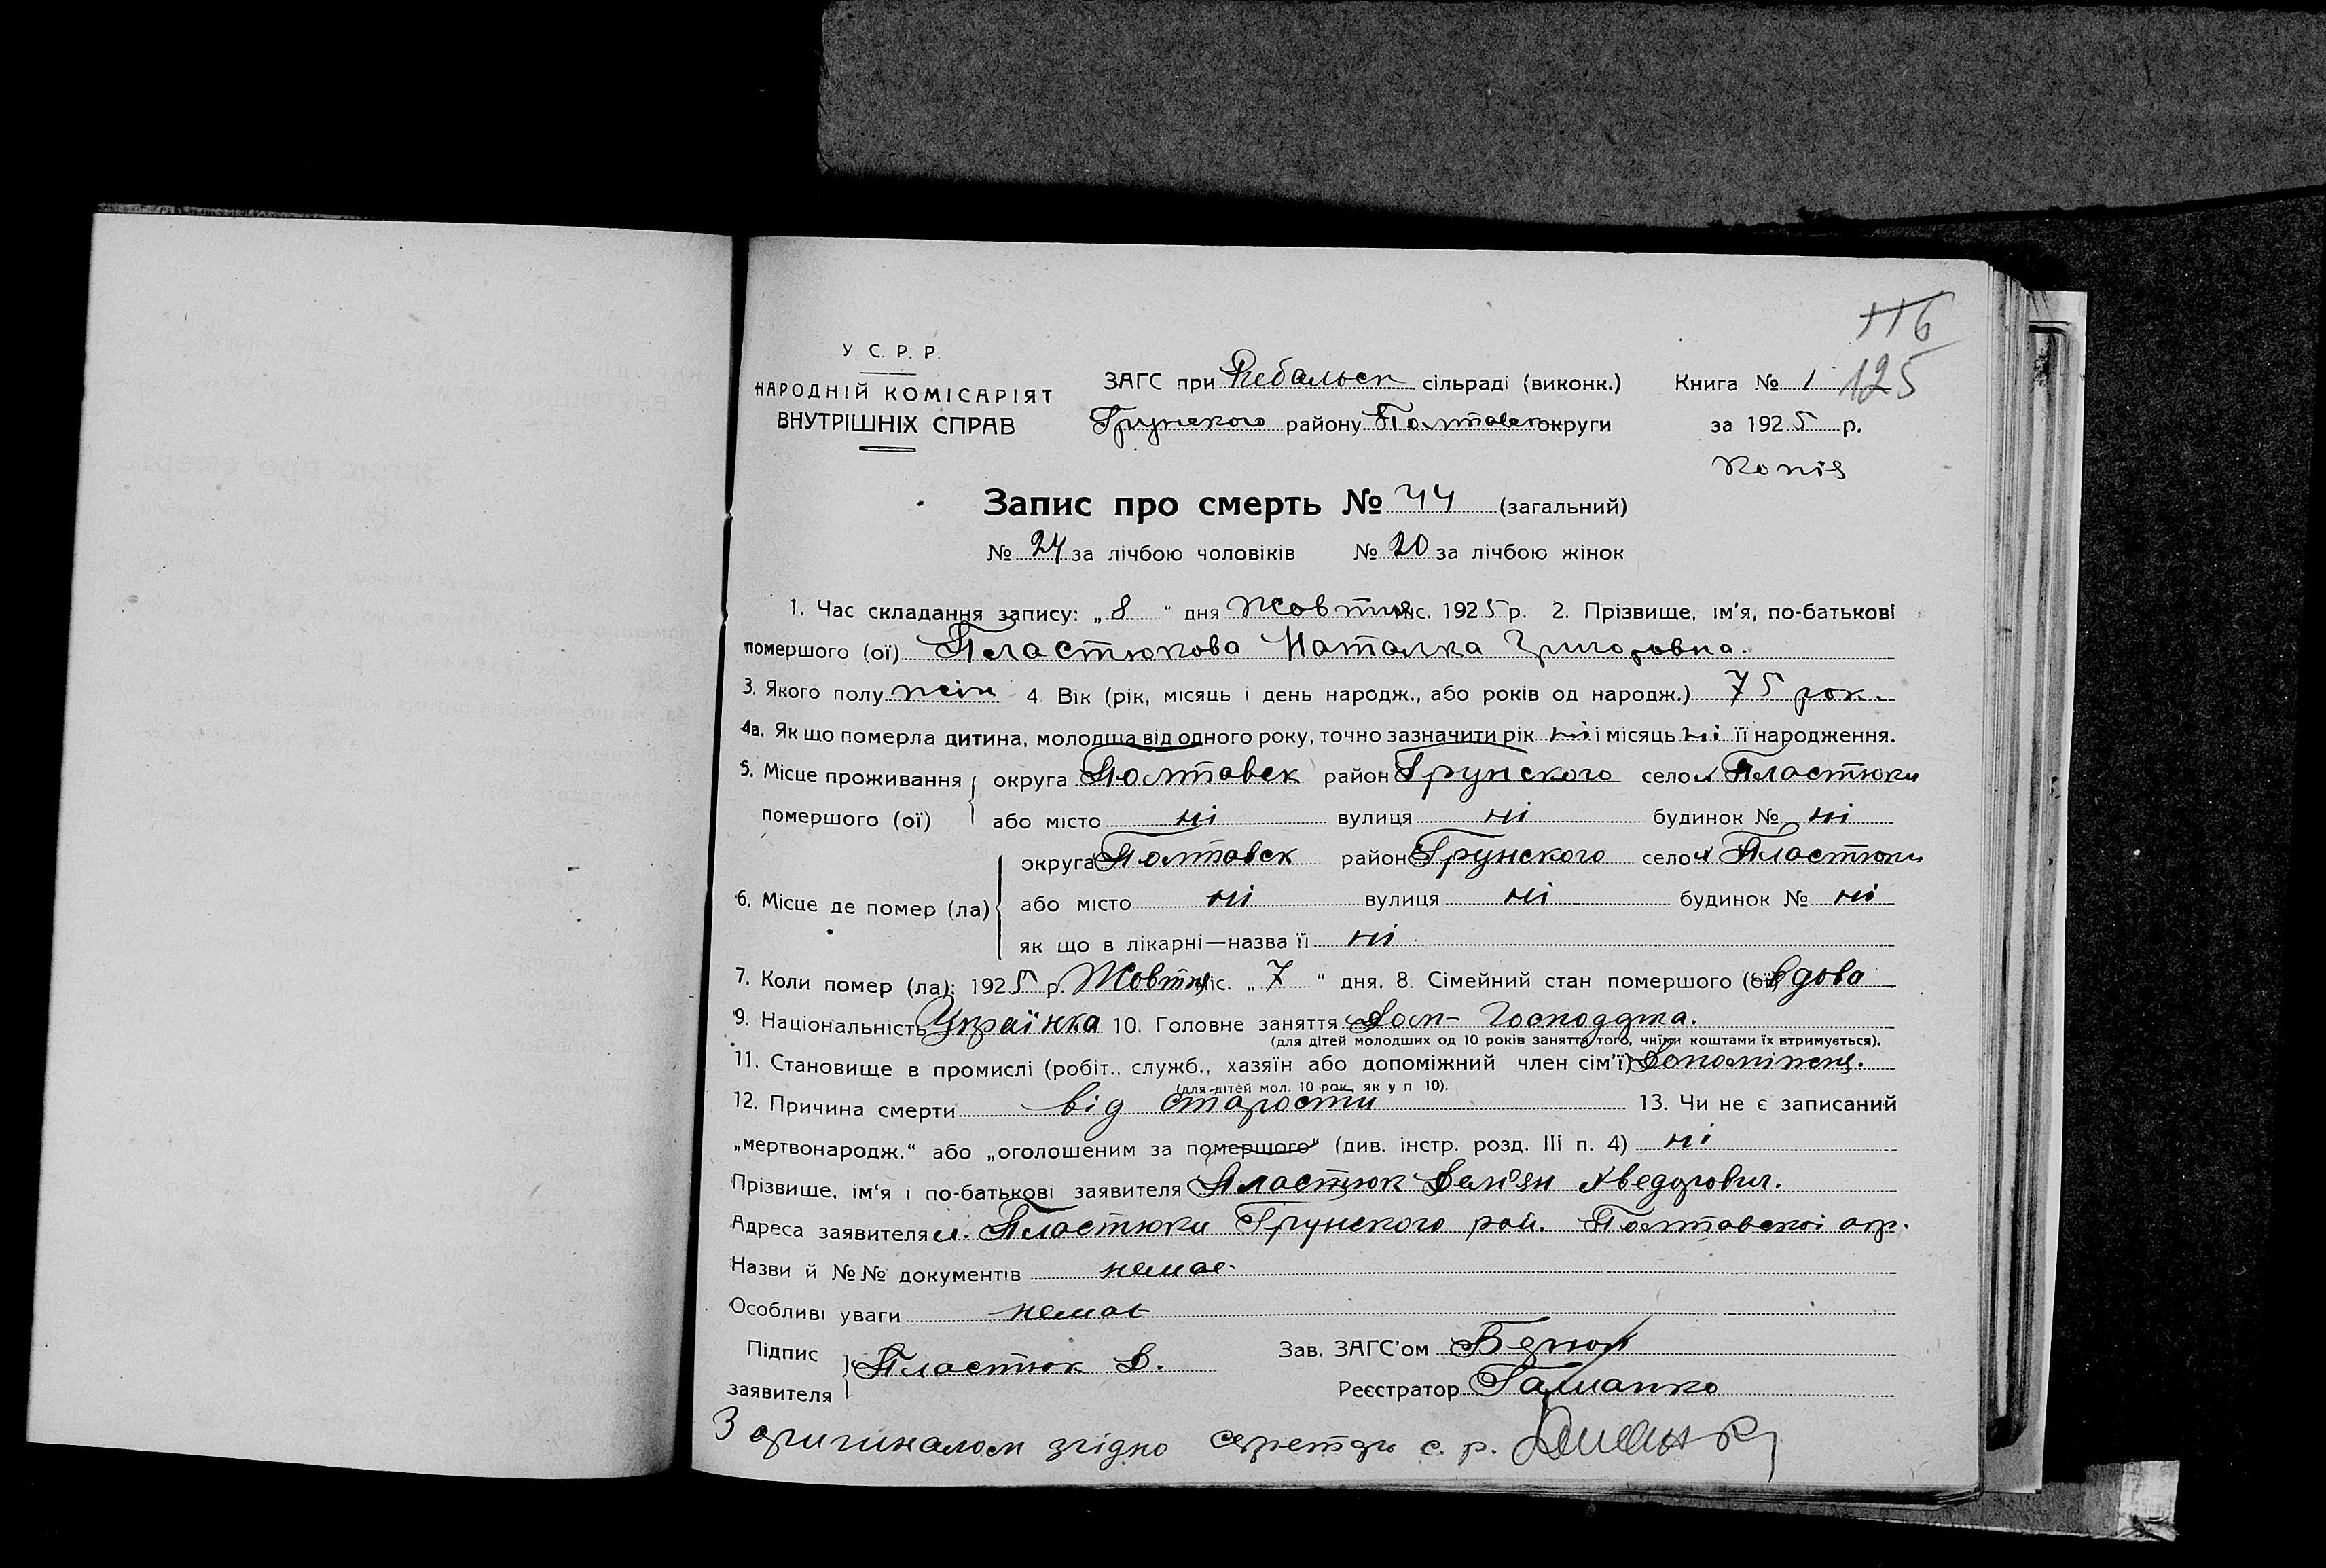 116
125
У. С. Р. Р.
НАРОДНІЙ КОМІСАРІЯТ
ВНУТРІШНІХ СПРАВ
ЗАГС при Рибальск сільраді (виконк.)
Грунского району Полтавськ округи
Книга № 1
за 1925 р.
Копія
Запис про смерть № 44 (загальний)
№ 24 за лічбою чоловіків № 20 за лічбою жінок
1. Час складання запису: „8“ дня Жовтня міс. 1925 р. 2. Прізвище, ім'я, по-батькові
помершого (ої) Пластюкова Наталка Григоровна.
3. Якого полу жін 4. Вік (рік, місяць і день народж., або років од народж.) 75 рок.
4а. Як що померла дитина, молодша від одного року, точно зазначити рік ні і місяць ні її народження.
5. Місце проживання помершого (ої) округа Полтавськ район Грунского село х Пластюки
або місто ні вулиця ні будинок № ні
6. Місце де помер (ла) округа Полтавськ район Грунского село х Пластюки
або місто ні вулиця ні будинок № ні
як що в лікарні—назва її ні
7. Коли помер (ла): 1925 р. Жовтня міс. „7“ дня. 8. Сімейний стан помершого (ої) вдова
9. Національність Українка 10. Головне заняття Дом- Господарка.
(для дітей молодших од 10 років заняття того, чиїми коштами їх втримується).
11. Становище в промислі (робіт., служб., хазяїн або допоміжний член сім'ї) Допоміжн.
(для дітей мол. 10 рок. як у п 10).
12. Причина смерти від старости 13. Чи не є записаний
„мертвонародж.“ або „оголошеним за помершого“ (див. інстр. розд. III п. 4) ні
Прізвище, ім'я і по-батькові заявителя Пластюк Дем'ян Хведорович.
Адреса заявителя х. Пластюки Грунского рай. Полтавскоі окр.
Назви й №№ документів немає.
Особливі уваги немає
Підпис заявителя Пластюк Д.
Зав. ЗАГС'ом
Реєстратор
З оригиналом згідно секретарь с. р.